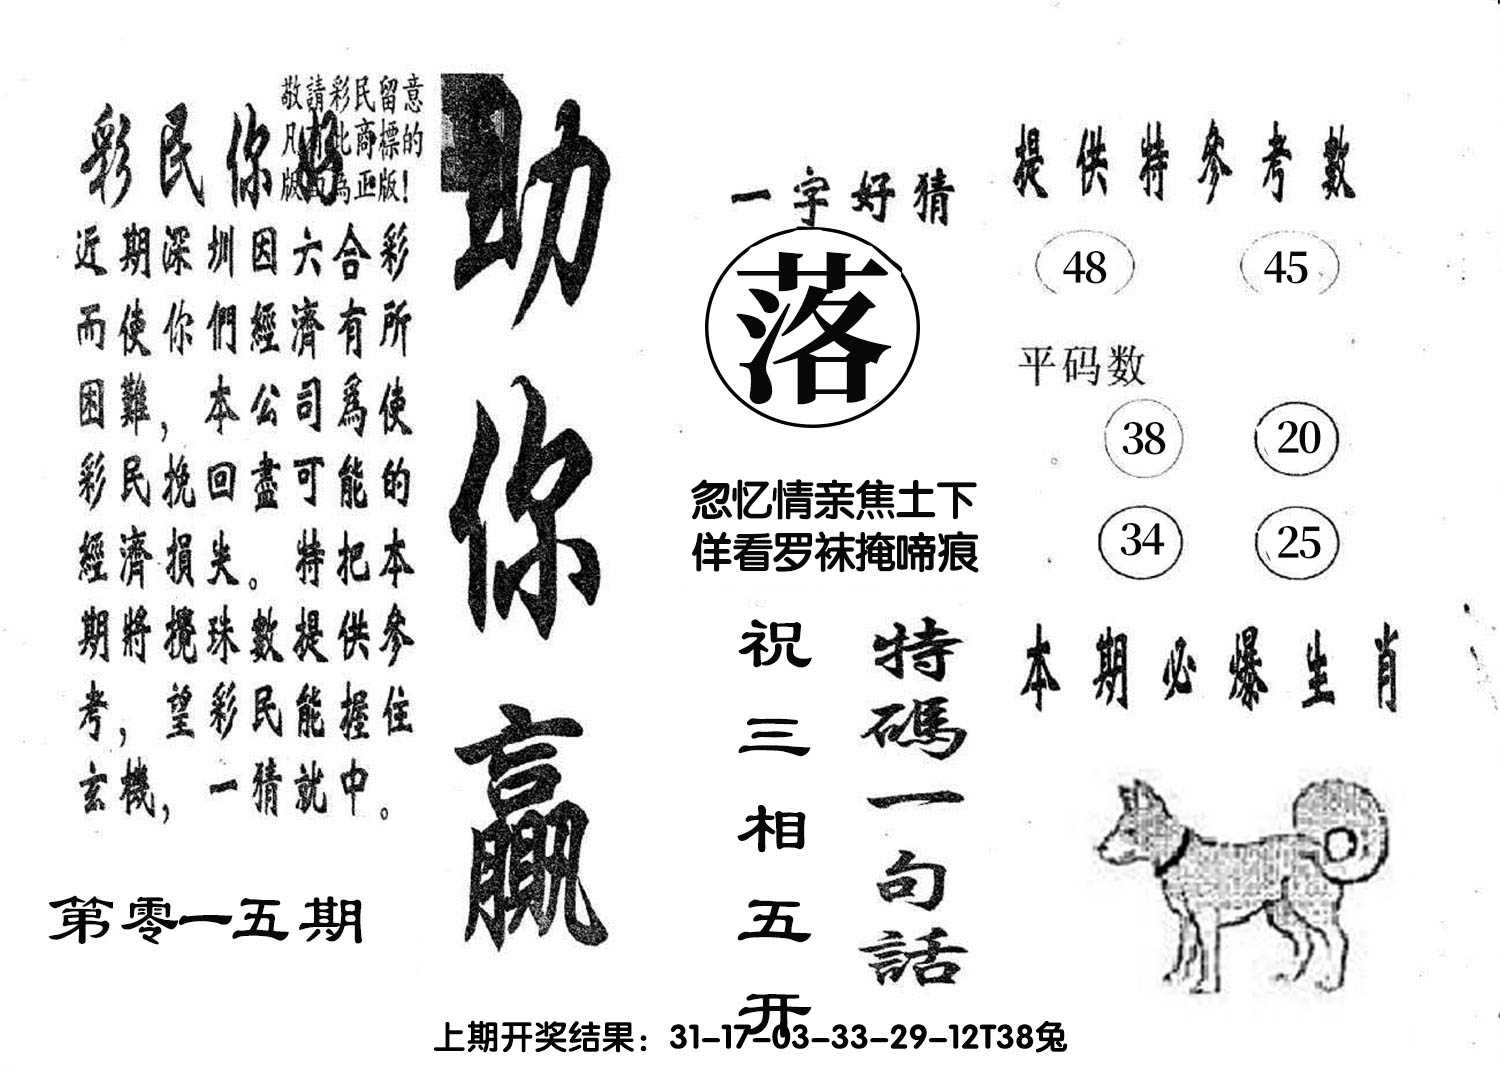 敬請彩民留意
凡有此商標的
版面為正版!
彩民你好
近期深圳因六合彩
而使你們經濟有所
困難，本公司爲使
彩民挽回盡可能的
經濟損失。特把本
期將攪珠數提供參
考，望彩民能握住
玄機，一猜就中。
第零一五期
助你贏
一字好猜
落
忽忆情亲焦土下
佯看罗袜掩啼痕
特碼一句話
祝三相五开
提供特參考數
48 45
平码数
38 20
34 25
本期必爆生肖
上期开奖结果：31-17-03-33-29-12T38兔